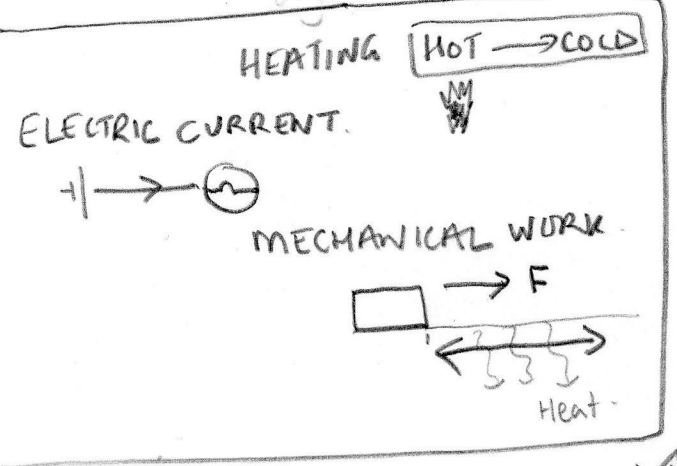 HEATING HOT → COLD
ELECTRIC CURRENT.
MECHANICAL WORK.
F
Heat.